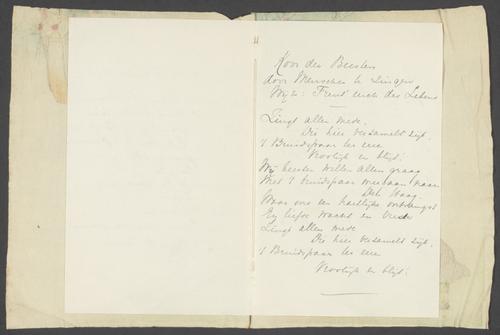 Koor der Beesten
door Menschen te Zingen
Wijze: Freut euch des Lebens
Zingt allen mede
Die hier verzameld zijt,
't Bruidspaar ter eer
Vroolijk en blijd!
Wij beesten willen allen graag
Met 't bruidspaar meegaan naar
Den Haag
Waar ons een hartelijk ontvangst
En liefde wacht en
Zingt allen mede
Die hier verzameld zijt,
't Bruidspaar ter eer
Vroolijk en blijd!